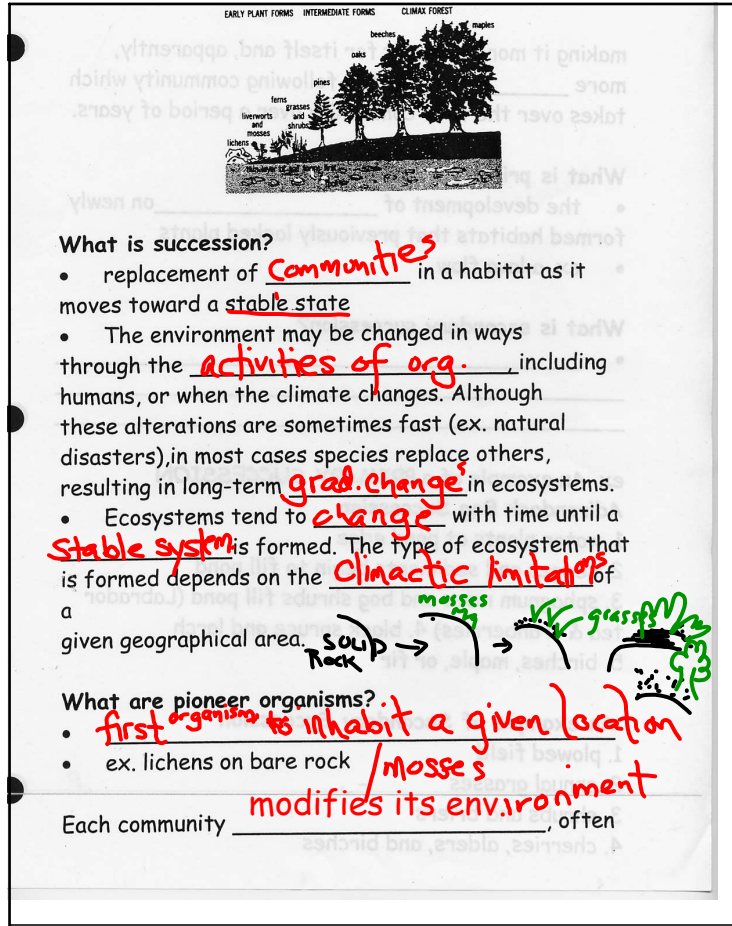 EARLY PLANT FORMS INTERMEDIATE FORMS CLIMAX FOREST
maples
beeches
oaks
pines
ferns
grasses
and
shrubs
liverworts
and
mosses
lichens
What is succession?
• replacement of Communities in a habitat as it
moves toward a stable state
• The environment may be changed in ways
through the activities of org. , including
humans, or when the climate changes. Although
these alterations are sometimes fast (ex. natural
disasters),in most cases species replace others,
resulting in long-term grad. changes in ecosystems.
• Ecosystems tend to change with time until a
Stable system is formed. The type of ecosystem that
is formed depends on the Climactic limitations of
a
given geographical area.
SOLID
ROCK
mosses
grasses
What are pioneer organisms?
• first organism to inhabit a given location
• ex. lichens on bare rock / mosses
modifies its env.ironment
Each community ______, often